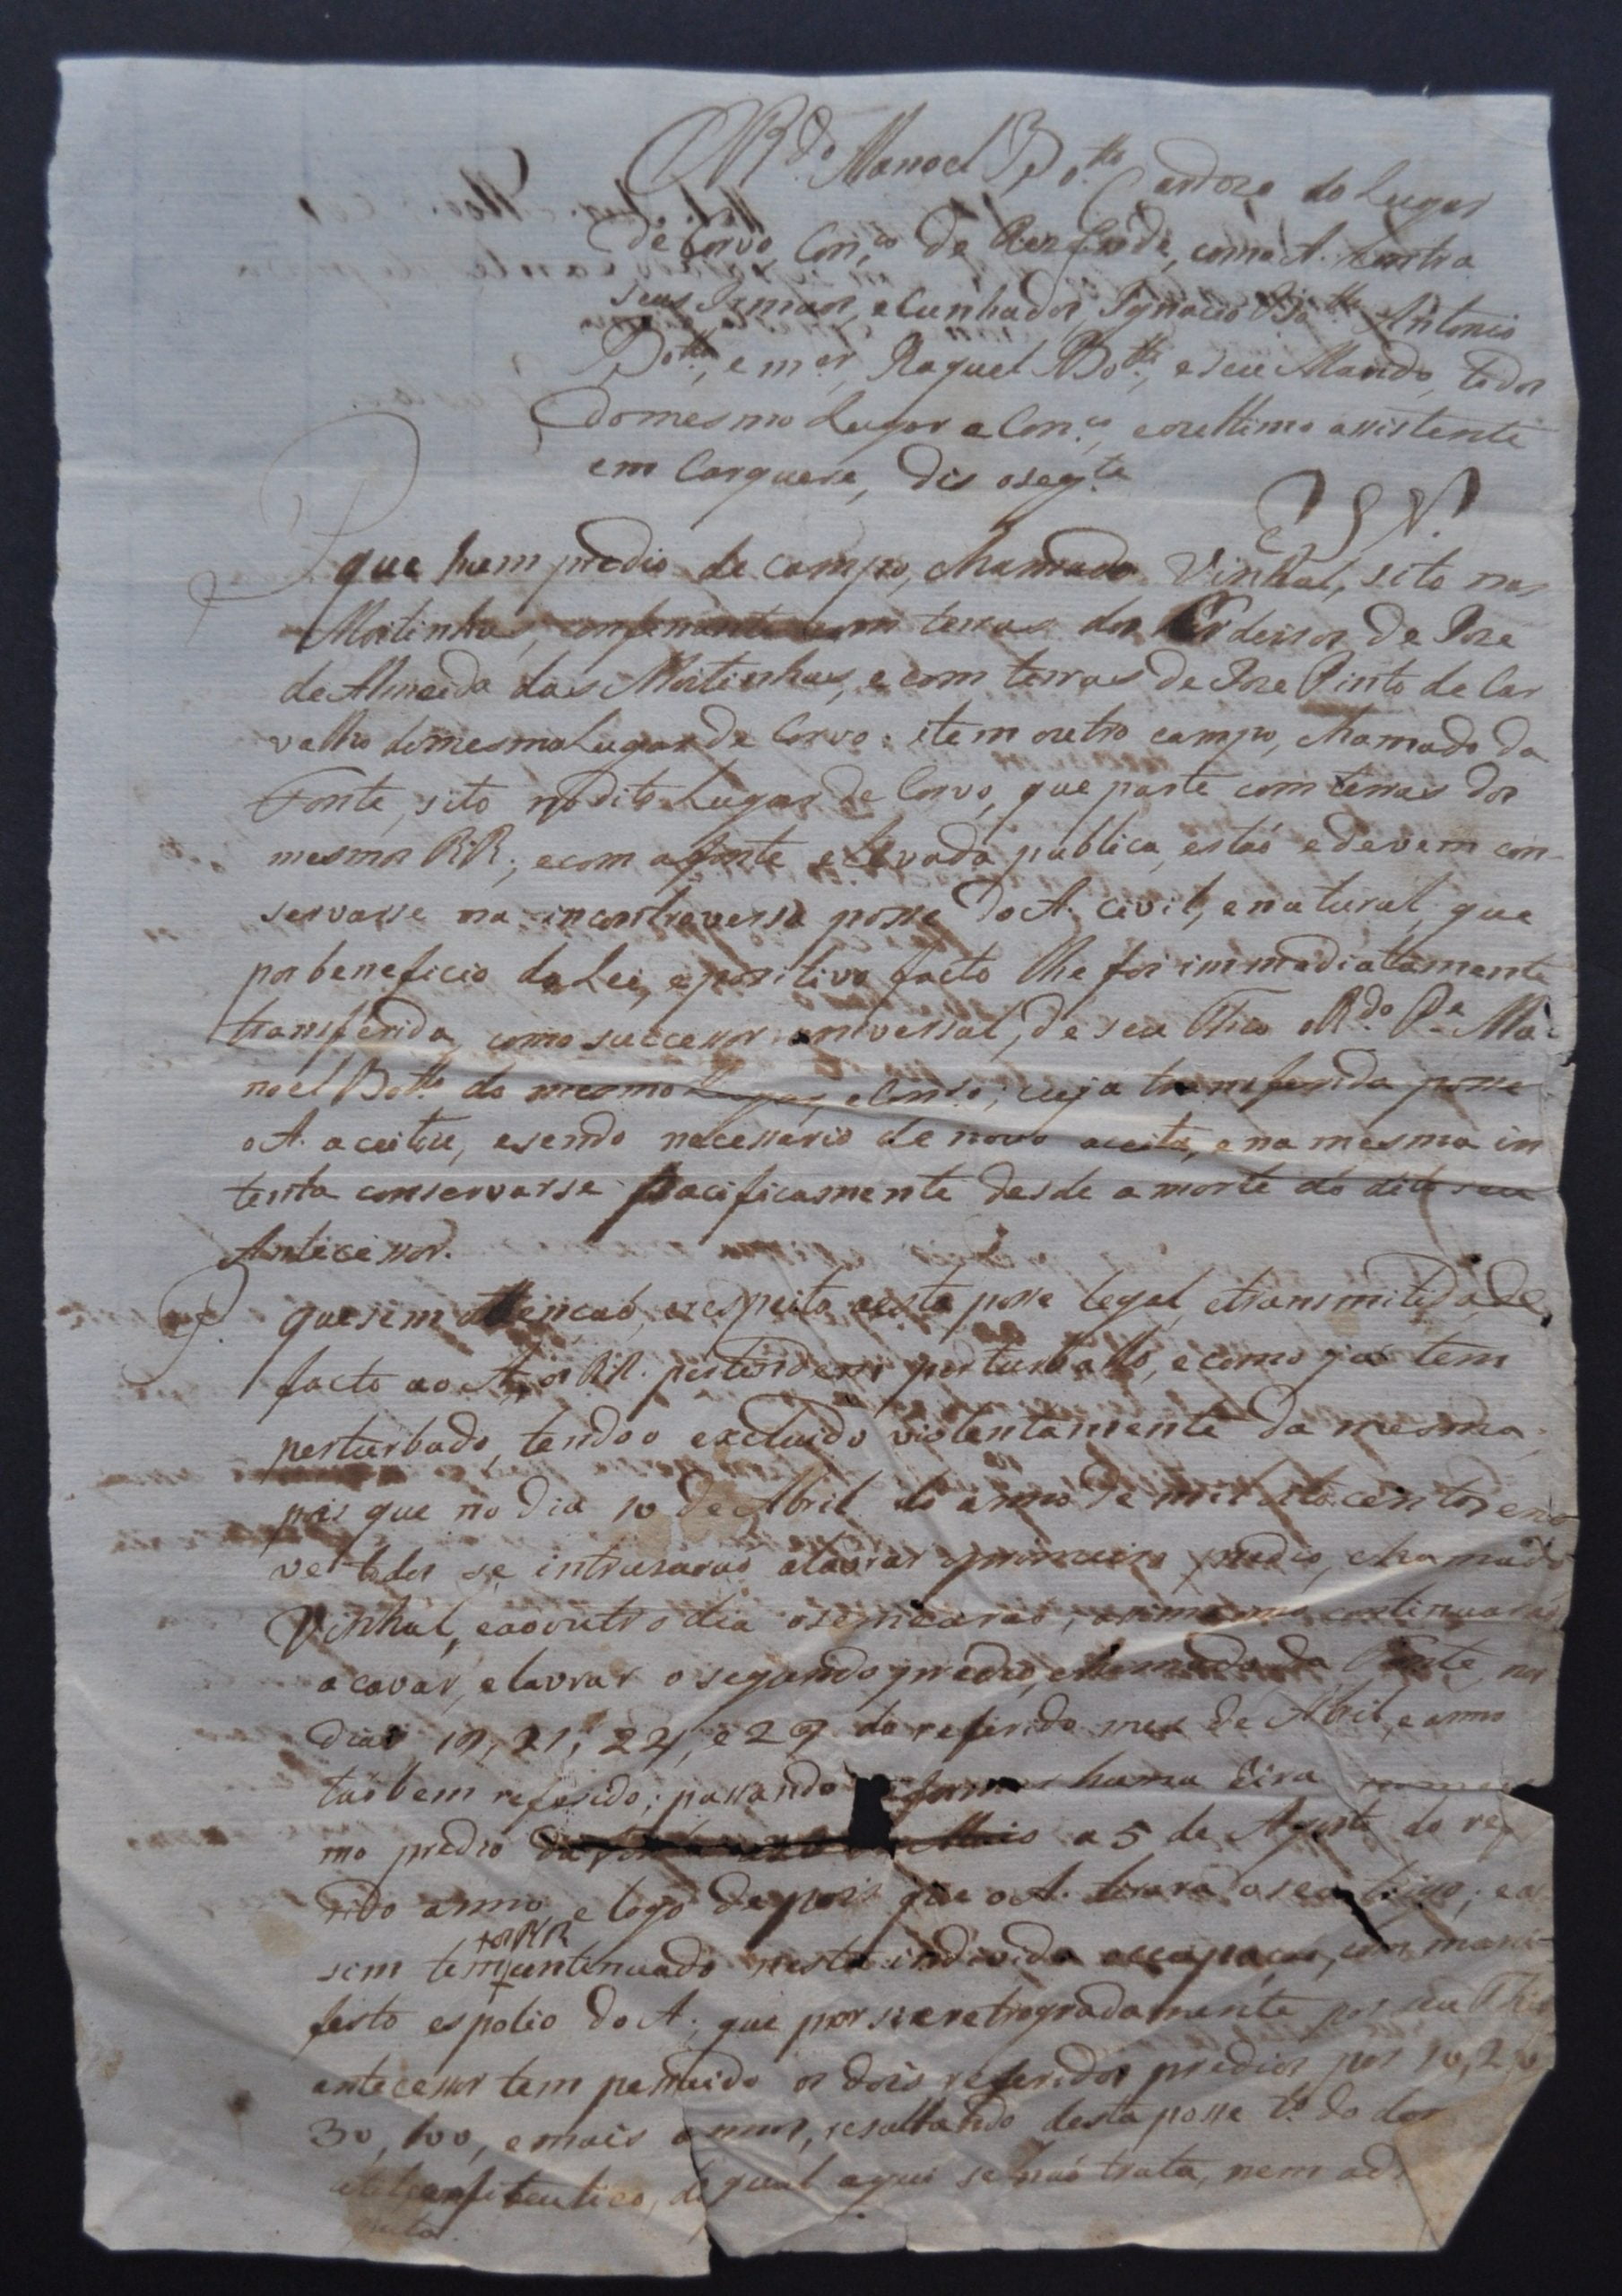 O R.do Manoel Bo.tto Cardozo do Lugar
de Corvo, Con.co de Rezende, como A. contra
seus Irmaos, e Cunhados, Ignacio Bo.tto Antonio
Bo.tto, e m.er, Raquel Bo.tto, e seu Marido, todos
do mesmo Lugar e Con.co, e o ultimo assistente
em Carquere, dis o seg.te
E S N.
P. que hum predio de campo, chamado Vinhal, sito nas
Moitinhas, confinante com terras dos Erdeiros de Joze
de Almeida das Moitinhas, e com terras de Joze Pinto de Car
valho do mesmo Lugar de Corvo; item outro campo, chamado da
Fonte, sito no dito Lugar de Corvo, que parte com terras dos
mesmos RR., e com a fonte e levada publica, estaó e devem con-
servarse na incontroversa posse do A. civil, e natural, que
por beneficio da Lei, e positivo facto lhe foi immediatamente
transferida, como successor universal, de seu Thio o R.do P.e Ma-
noel Bo.tto do mesmo Lugar, e Con.co; cuja transferida posse
o A. aceitou, e sendo necessario de novo aceita, e na mesma in
tenta conservarse pacificamente desde a morte do dito seu
Antecessor.
P. que sem attençaó, e respeito a esta posse legal, e transmitida de
facto ao A., os RR. pertendem perturballo, e como já tem
perturbado, tendo o excluido violentamente da mesma;
pois que no dia 10 de Abril do anno de mil oito centos e no
ve todos se intrusaraó a lavrar o primeiro predio, chamado
Vinhal, e ao outro dia o semearaó; continuaraó
a cavar, e lavrar o segundo predio, chamado da Fonte, nos
dias 19, 21, 22, e 29 do referido mes de Abril, e anno
taóbem referido; passando a formar huma Eira no mes
mo predio a 5 de Agosto do refe
rido anno e logo depois que o A. tirara o seu trigo; e as
+ os RR
sim tem continuado nesta individa occupaçaó, com mani
festo espolio do A., que por si e retrogradamente por seu Thio
antecessor tem possuido os dois referidos predios por 10, 20,
30, 100, e mais annos, resultando desta posse t.o do dom
util enfiteutico, do qual aqui se naó trata, nem